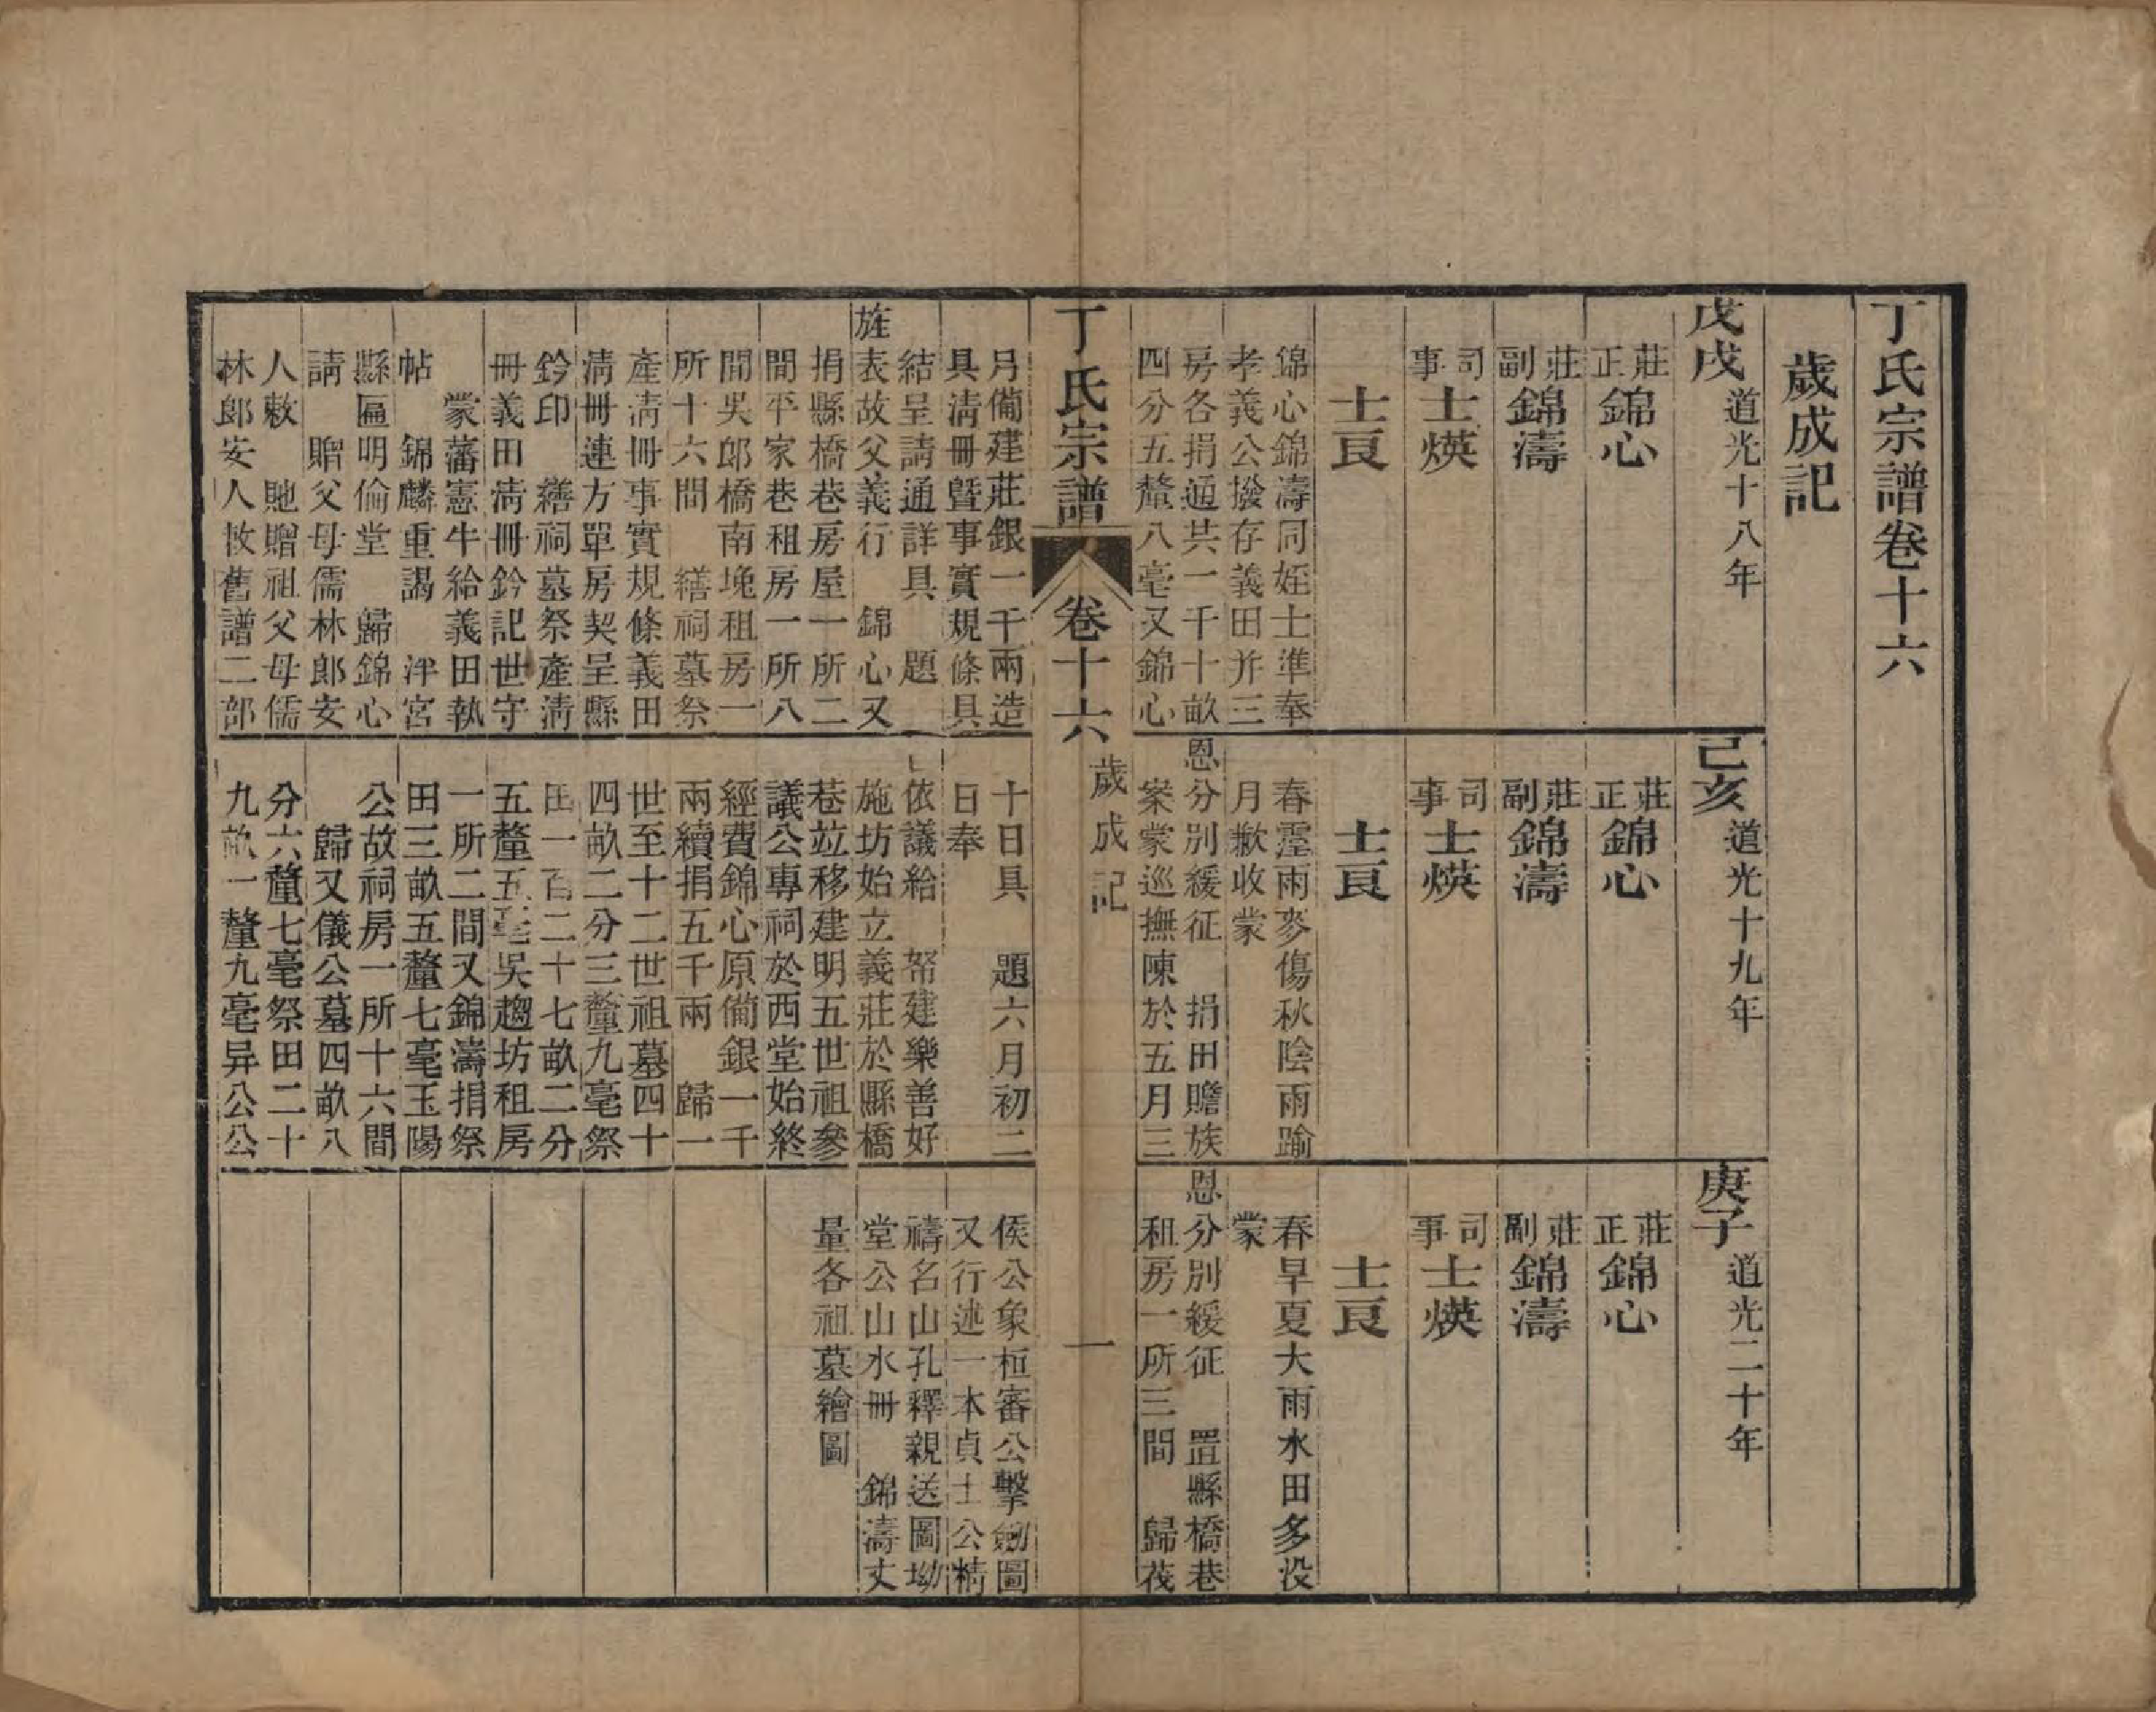 丁氏宗譜卷十六
歲成記
戊戌道光十八年
莊正錦心
莊副錦濤
司事士煐
士良
錦心錦濤同姪士準奉
孝義公撥存義田并三
房各捐通共一千十畝
四分五釐八毫又錦心
月備建莊銀一千兩造
具淸冊暨事實規條具
結呈請通詳具 題
旌表故父義行 錦心又
捐縣橋巷房屋一所二
間平家巷租房一所八
間吳郎橋南堍租房一
所十六間 繕祠墓祭
產淸冊事實規條義田
淸冊連方單房契呈縣
鈐印 繕祠墓祭產淸
冊義田淸冊鈐記世守
蒙藩憲牛給義田執
帖 錦麟重謁 泮宮
縣匾明倫堂 歸錦心
請 贈父母儒林郎安
人敕 貤贈祖父母儒
林郎安人敉舊譜二部
己亥道光十九年
莊正錦心
莊副錦濤
司事士煐
士良
春霪雨麥傷秋陰雨踰
月歉收蒙
恩分別緩征 捐田贍族
案蒙巡撫陳於五月三
十日具 題六月初二
日奉
依議給 帑建樂善好
施坊始立義莊於縣橋
巷竝移建明五世祖參
議公專祠於西堂始終
經費錦心原備銀一千
兩續捐五千兩 歸一
世至十二世祖墓四十
四畝二分三釐九毫祭
田一百二十七畝二分
五釐五毫吳趨坊租房
一所二間又錦濤捐祭
田三畝五釐七毫玉陽
公故祠房一所十六間
歸又儀公墓四畝八
分六釐七毫祭田二十
九畝一釐九毫异公公
庚子道光二十年
莊正錦心
莊副錦濤
司事士煐
士良
春旱夏大雨水田多没
蒙
恩分別緩征 置縣橋巷
租房一所三間 歸茂
侯公象桓審公擊劒圖
又行述一本貞士公精
禱名山孔釋親送圖坳
堂公山水冊 錦濤丈
量各祖墓繪圖
丁氏宗譜 卷十六 歲成記 一